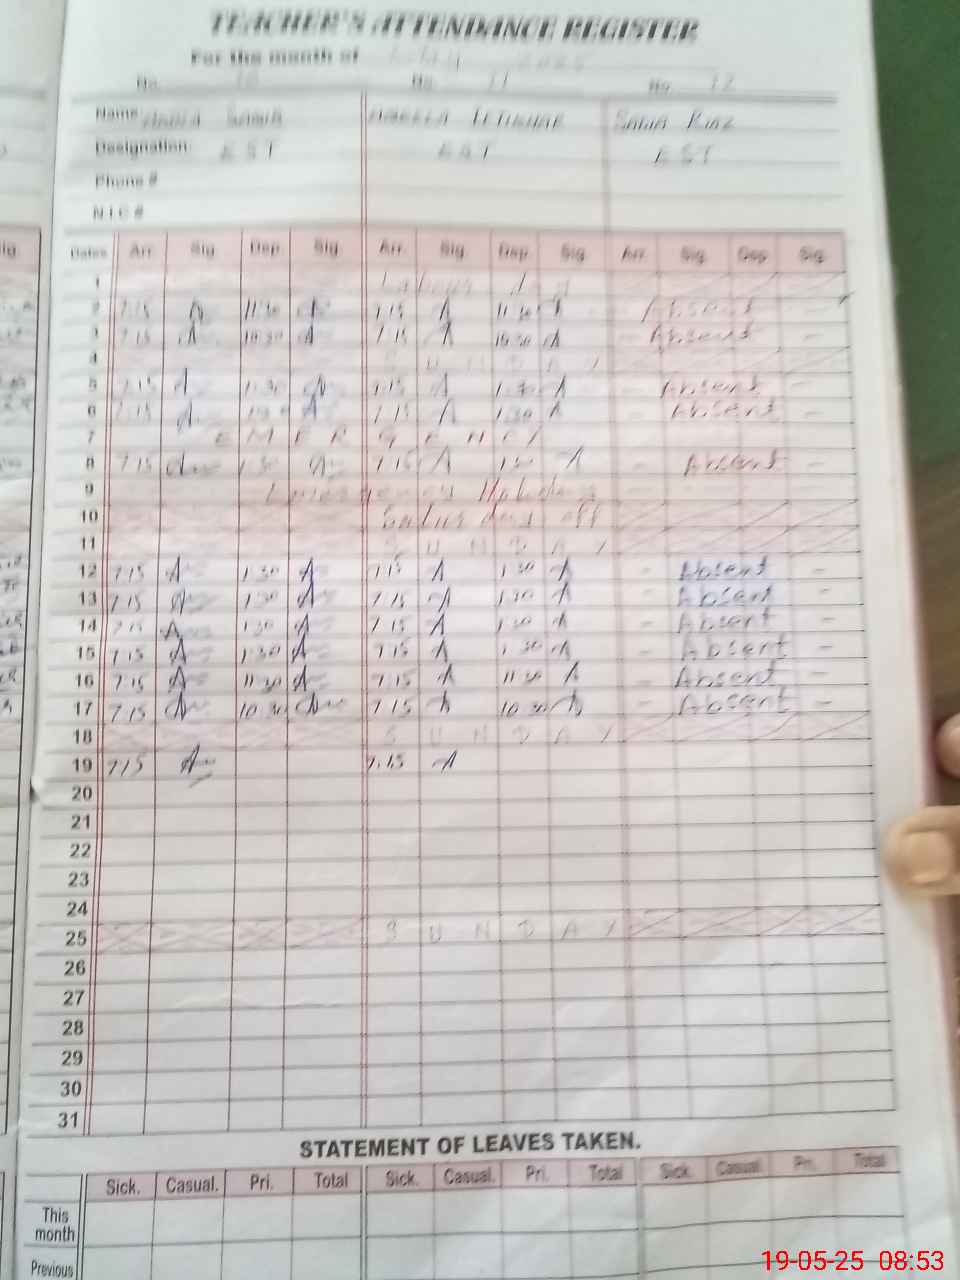 TEACHER'S ATTENDANCE REGISTER
For the month of May 2025
No. 10 No. 11 No. 12
Name SANIA RIAZ
Designation EST EST EST
Phone #
N.I.C #
Dates Arr. Sig. Dep. Sig. Arr. Sig. Dep. Sig. Arr. Sig. Dep. Sig.
1 Labour day
2 7.15 11.30 7.15 11.30 - Absent
3 7.15 10.30 7.15 10.30 - Absent -
4 SUNDAY
5 7.15 1.30 7.15 1.30 - Absent -
6 7.15 1.30 7.15 1.30 - Absent -
7 EMERGENCY
8 7.15 1.30 7.15 1.30 - Absent -
9 Holiday
10 off
11 SUNDAY
12 7.15 1.30 7.15 1.30 - Absent -
13 7.15 1.30 7.15 1.30 - Absent -
14 7.15 1.30 7.15 1.30 - Absent -
15 7.15 1.30 7.15 1.30 - Absent -
16 7.15 11.30 7.15 11.30 - Absent -
17 7.15 10.30 7.15 10.30 - Absent -
18 SUNDAY
19 7.15 7.15
20
21
22
23
24
25 SUNDAY
26
27
28
29
30
31
STATEMENT OF LEAVES TAKEN.
Sick. Casual. Pri. Total Sick. Casual. Pri. Total Sick. Casual. Pri. Total
This month
Previous
19-05-25 08:53